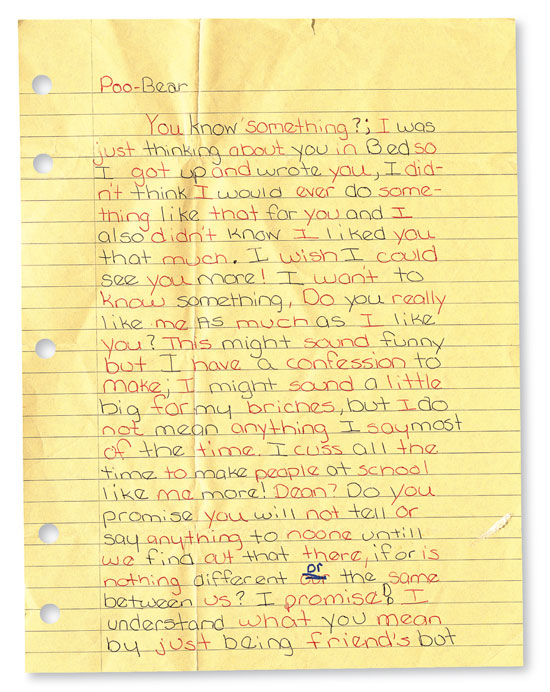 Poo-Bear
You know something?; I was
just thinking about you in Bed so
I got up and wrote you, I did-
n't think I would ever do some-
thing like that for you and I
also didn't know I liked you
that much. I wish I could
see you more! I wan't to
know something, Do you really
like me As much as I like
you? This might sound funny
but I have a confession to
make; I might sound a little
big for my briches, but I do
not mean anything I say most
of the time. I cuss all the
time to make people at school
like me more! Dean? Do you
promise you will not tell or
say anything to noone untill
we find out that there, if or is
nothing different or the same
between us? I promise! I
understand what you mean
by just being friend's but